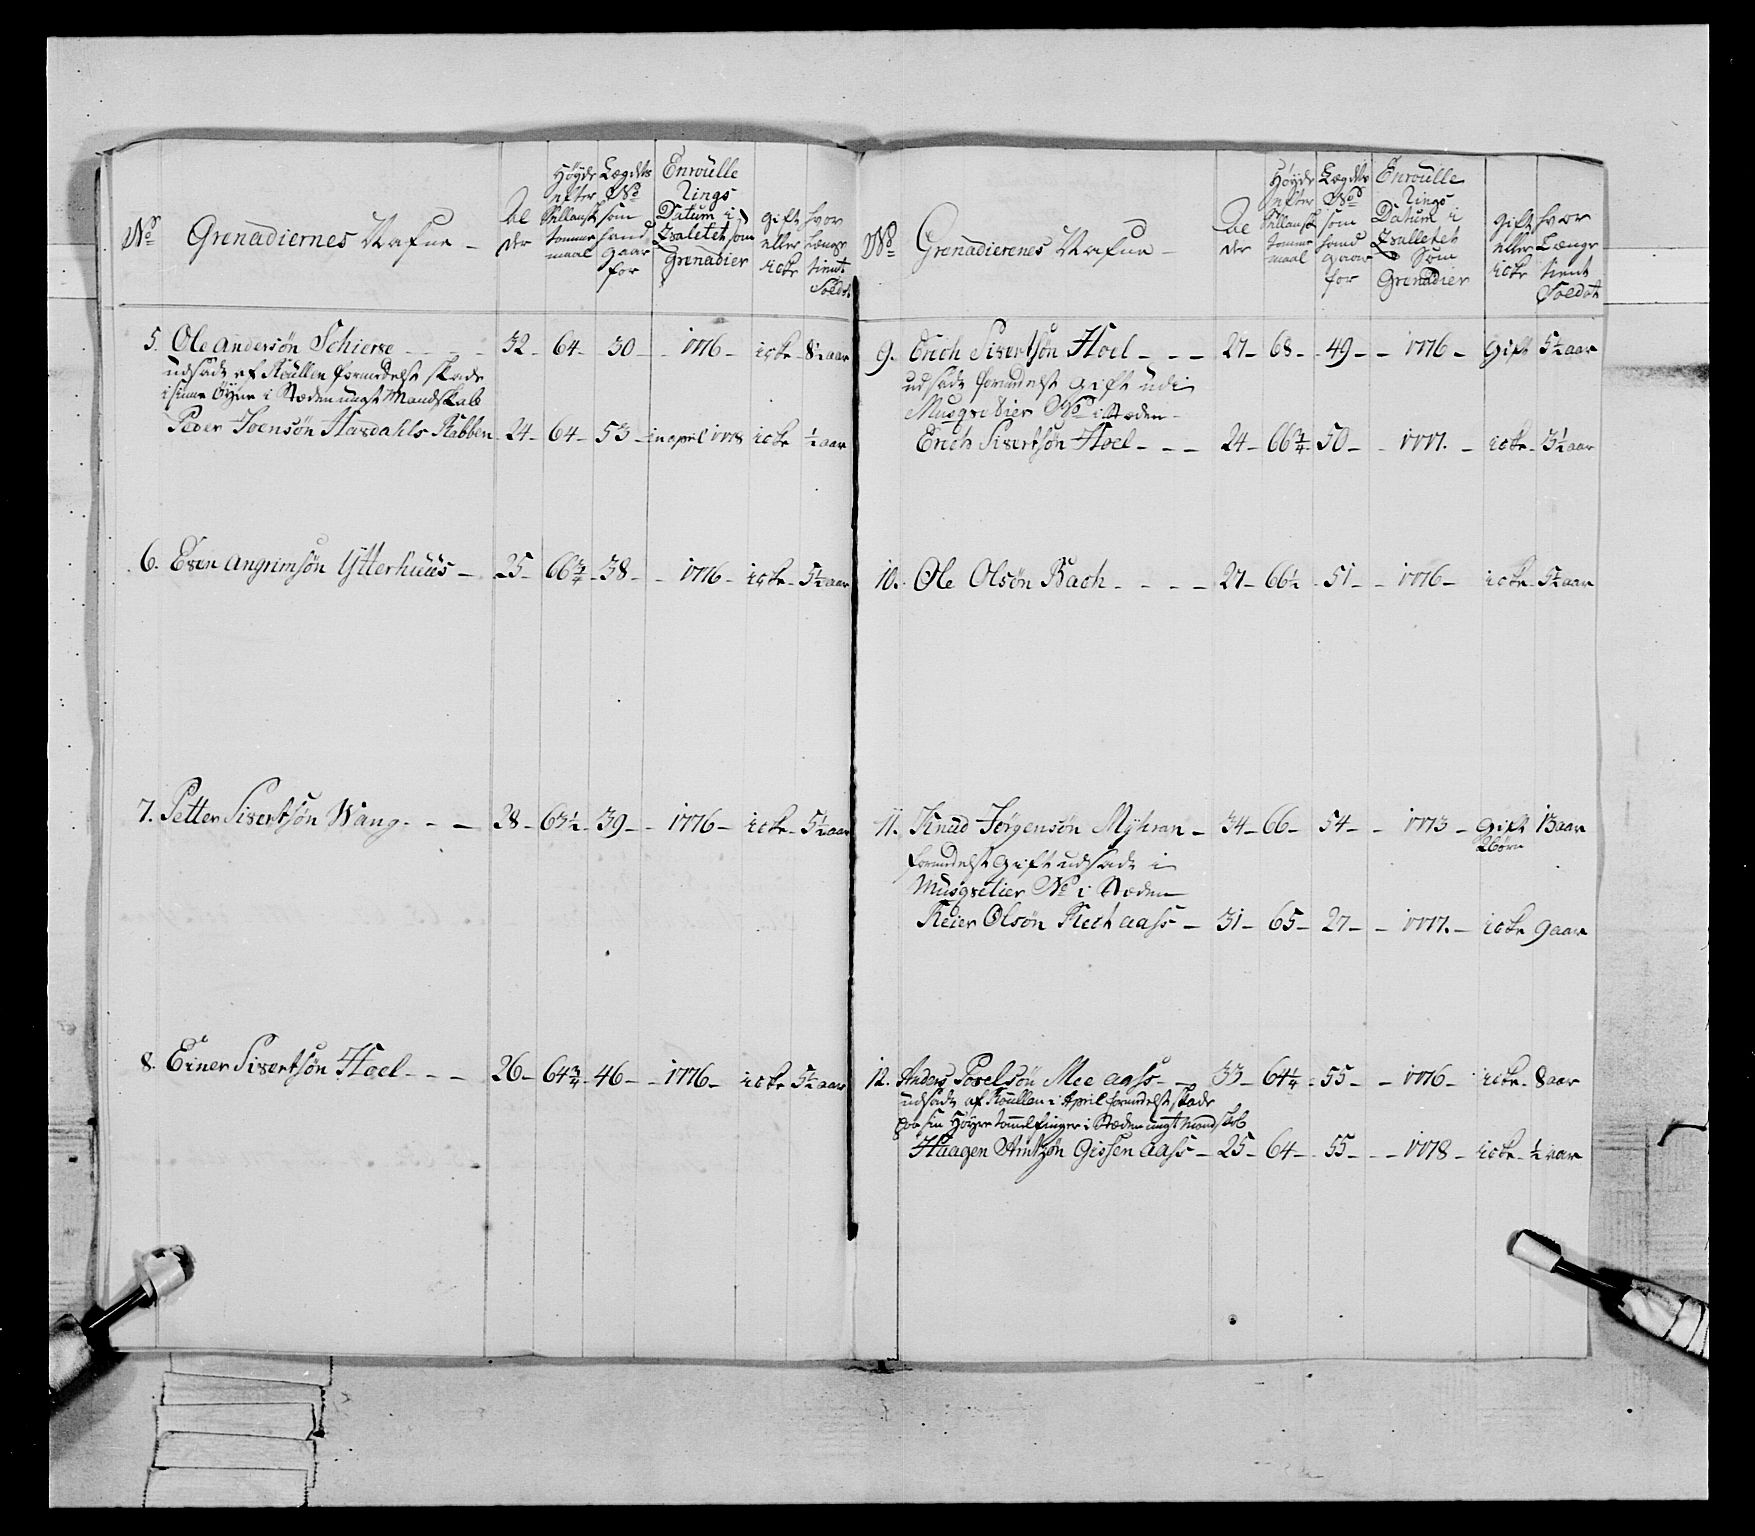 No
Grenadiernes Nafne –
Al
der
Høyde
efter
Sellansk
tomme
maal
Lægdets
No
som
hand
gaar
for
Enroulle
rings
Datum i
som
Grenadier
gift
eller
icke
hvor
Længe
tient
Soldat
5. Ole Andersøn Schierse – 32 – 64 – 30 – – 1776 – icke – 8½ aar
udsadt af Roullen formedelst skade
i sinne Øyne i Stæden ungt Mandskab
Peder Joensøn Hasdahls Rabben 24 – 64 – 53 – in april 1778 icke ½ aar
6. Esen Angrimsøn Ytterhuus – 25 – 66¾ – 38 – – 1776 – icke – 5½ aar
7. Petter Sivertsøn Wang – – – 28 – 63½ – 39 – – 1776 – icke – 5½ aar
8. Einer Sivertsøn Hoel – – – 26 – 64¾ – 46 – – 1776 – icke 5½ aar
No
Grenadierenes Nafne –
Al
der
Høyde
efter
Sellansk
tomme
maal
Lægdets
No
som
hand
gaar
for
Enroulle
rings
Datum i
Som
Grenadier
gift
eller
icke
hvor
Længe
tient
Soldat
9. Erich Sivertsøn Hoel – – – 27 – 68 – – 49 – – 1776 – gift 5½ aar
udsadt formedelst gift udi
Musqvetier No i Stæden –
Erich Sivertsøn Hoel – – – 24 – 66¾ – 50 – – 1777. – icke – 3½ aar
10. Ole Olsøn Bach – – – – 27 – 66½ – 51 – – 1776 – icke – 5½ aar
11. Knud Jørgensøn Myhran – 34 – 66 – 54 – – 1773 – gift 13 aar
2 børn
formedelst gift udsadt i
Musqvetier No i Stæden
Reier Olsøn Rech aass – 31 – 65 – 27 – – 1777. – icke 9 aar
12. Anders Povelsøn Mee aass – – 33 – 64¼ – 55 – – 1776 – icke – 8 aar
udsadt af Roullen i April formedelst skade
paa sin Høyre tommelfinger i Stæden ungt Mandskab
Haagen Arntzøn Gissen aass – 25 – 64 – 55 – – – 1778 – icke – ½ aar